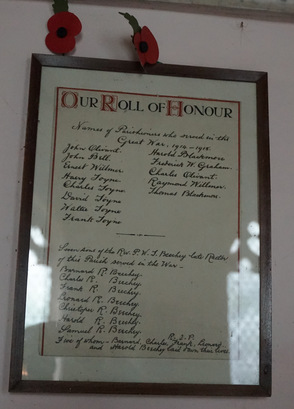 OUR ROLL OF HONOUR
Names of Parishioners who served in the
Great War, 1914 - 1918.
John Olivant. Harold Blackmore
John Bell. Frederick W. Graham.
Ernest Willmer. Charles Olivant.
Harry Toyne Raymond Willmer.
Charles Toyne Thomas Blackmore.
David Toyne
Walter Toyne
Frank Toyne
sons of the Rev. P. W. T. Beechey late Rector
of this Parish served in the War -
Barnard R. Beechey.
Charles R. Beechey.
Frank R. Beechey.
Leonard R. Beechey.
Christopher R. Beechey.
Harold R. Beechey.
Samuel R. Beechey.
R. I. P.
Five of whom - Barnard, Charles, Frank, Leonard,
and Harold Beechey laid down their lives.